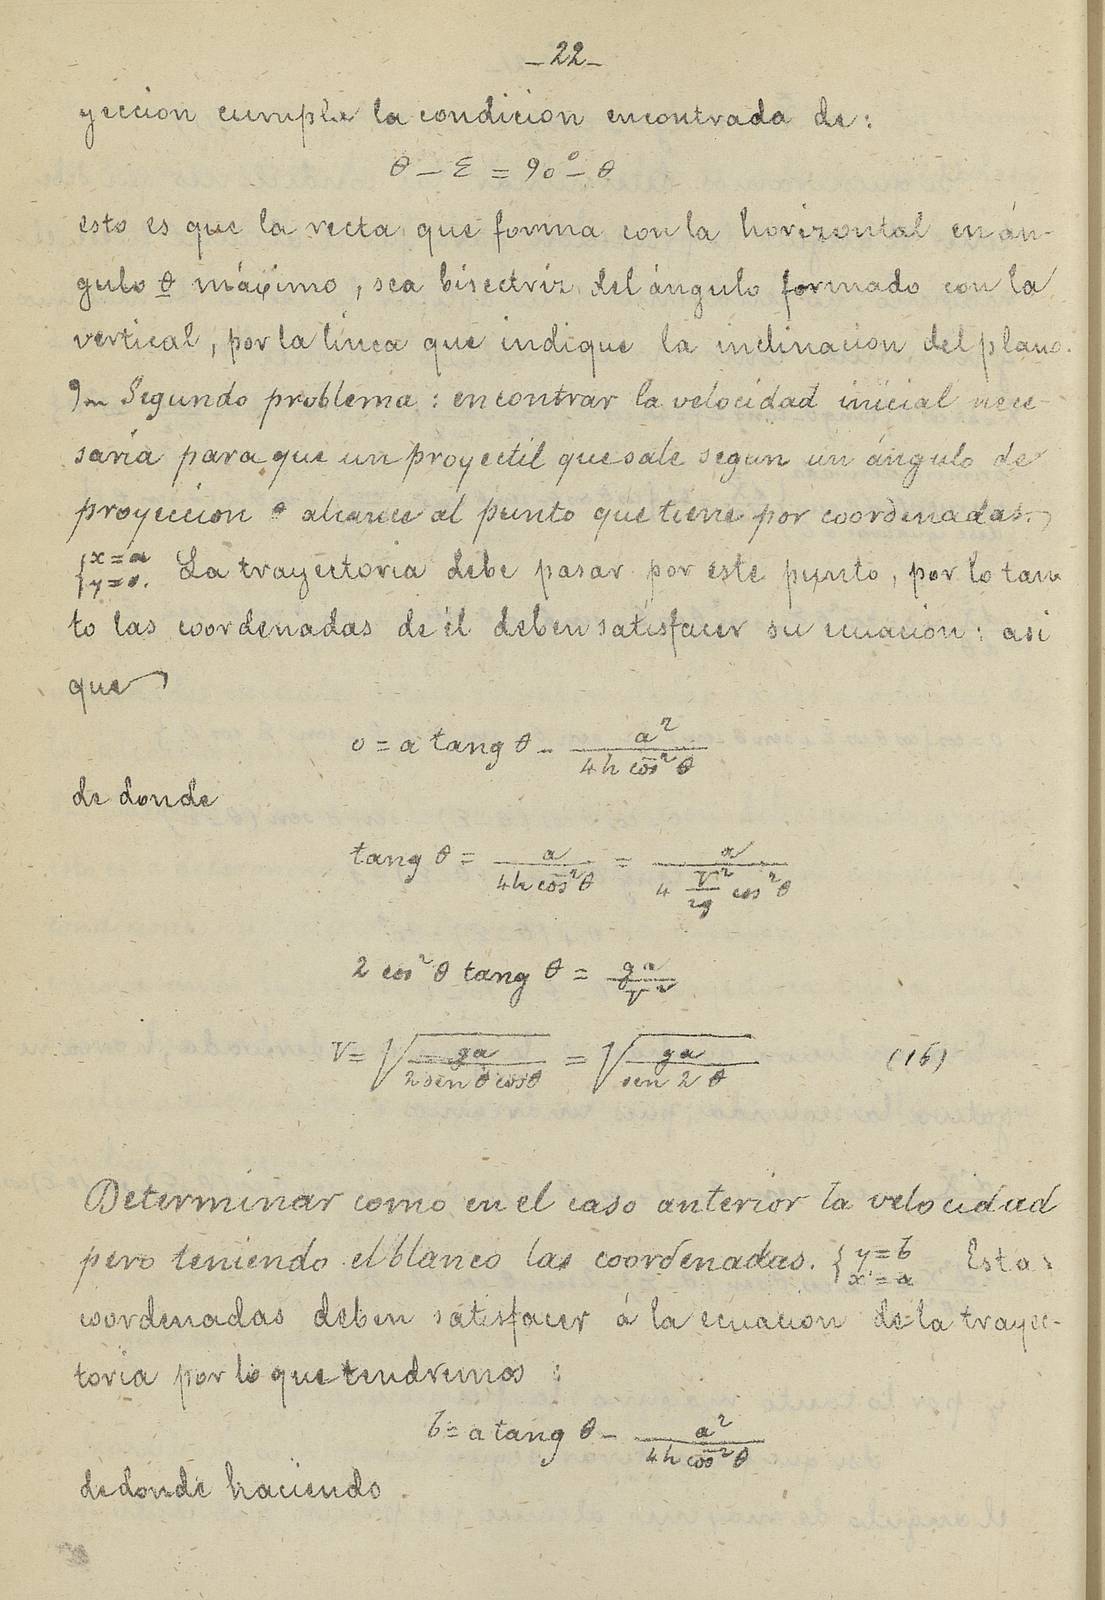 -22-
yeccion cumple la condicion encontrada de:
θ - Σ = 90° - θ
esto es que la recta que forma con la horizontal en án-
gulo θ máximo, sea bisectriz del ángulo formado con la
vertical, por la línea que indique la inclinacion del plano.
9- Segundo problema: encontrar la velocidad inicial nece-
saria para que un proyectil que sale segun un ángulo de
proyeccion θ alcance al punto que tiene por coordenadas.
{x=a y=o. La trayectoria debe pasar por este punto, por lo tan
to las coordenadas de él deben satisfacer su ecuacion: asi
que
o = a tang θ - a²/(4h cos² θ)
de donde
tang θ = a/(4h cos² θ) = a/(4 V²/2g cos² θ)
2 cos² θ tang θ = ga/V²
V = √(ga/(2 sen θ cos θ)) = √(ga/(sen 2 θ)) (16)
Determinar como en el caso anterior la velocidad
pero teniendo el blanco las coordenadas. {y=b x=a Estas
coordenadas deben satisfacer á la ecuacion de la trayec-
toria por lo que tendremos:
b = a tang θ - a²/(4h cos² θ)
de donde haciendo